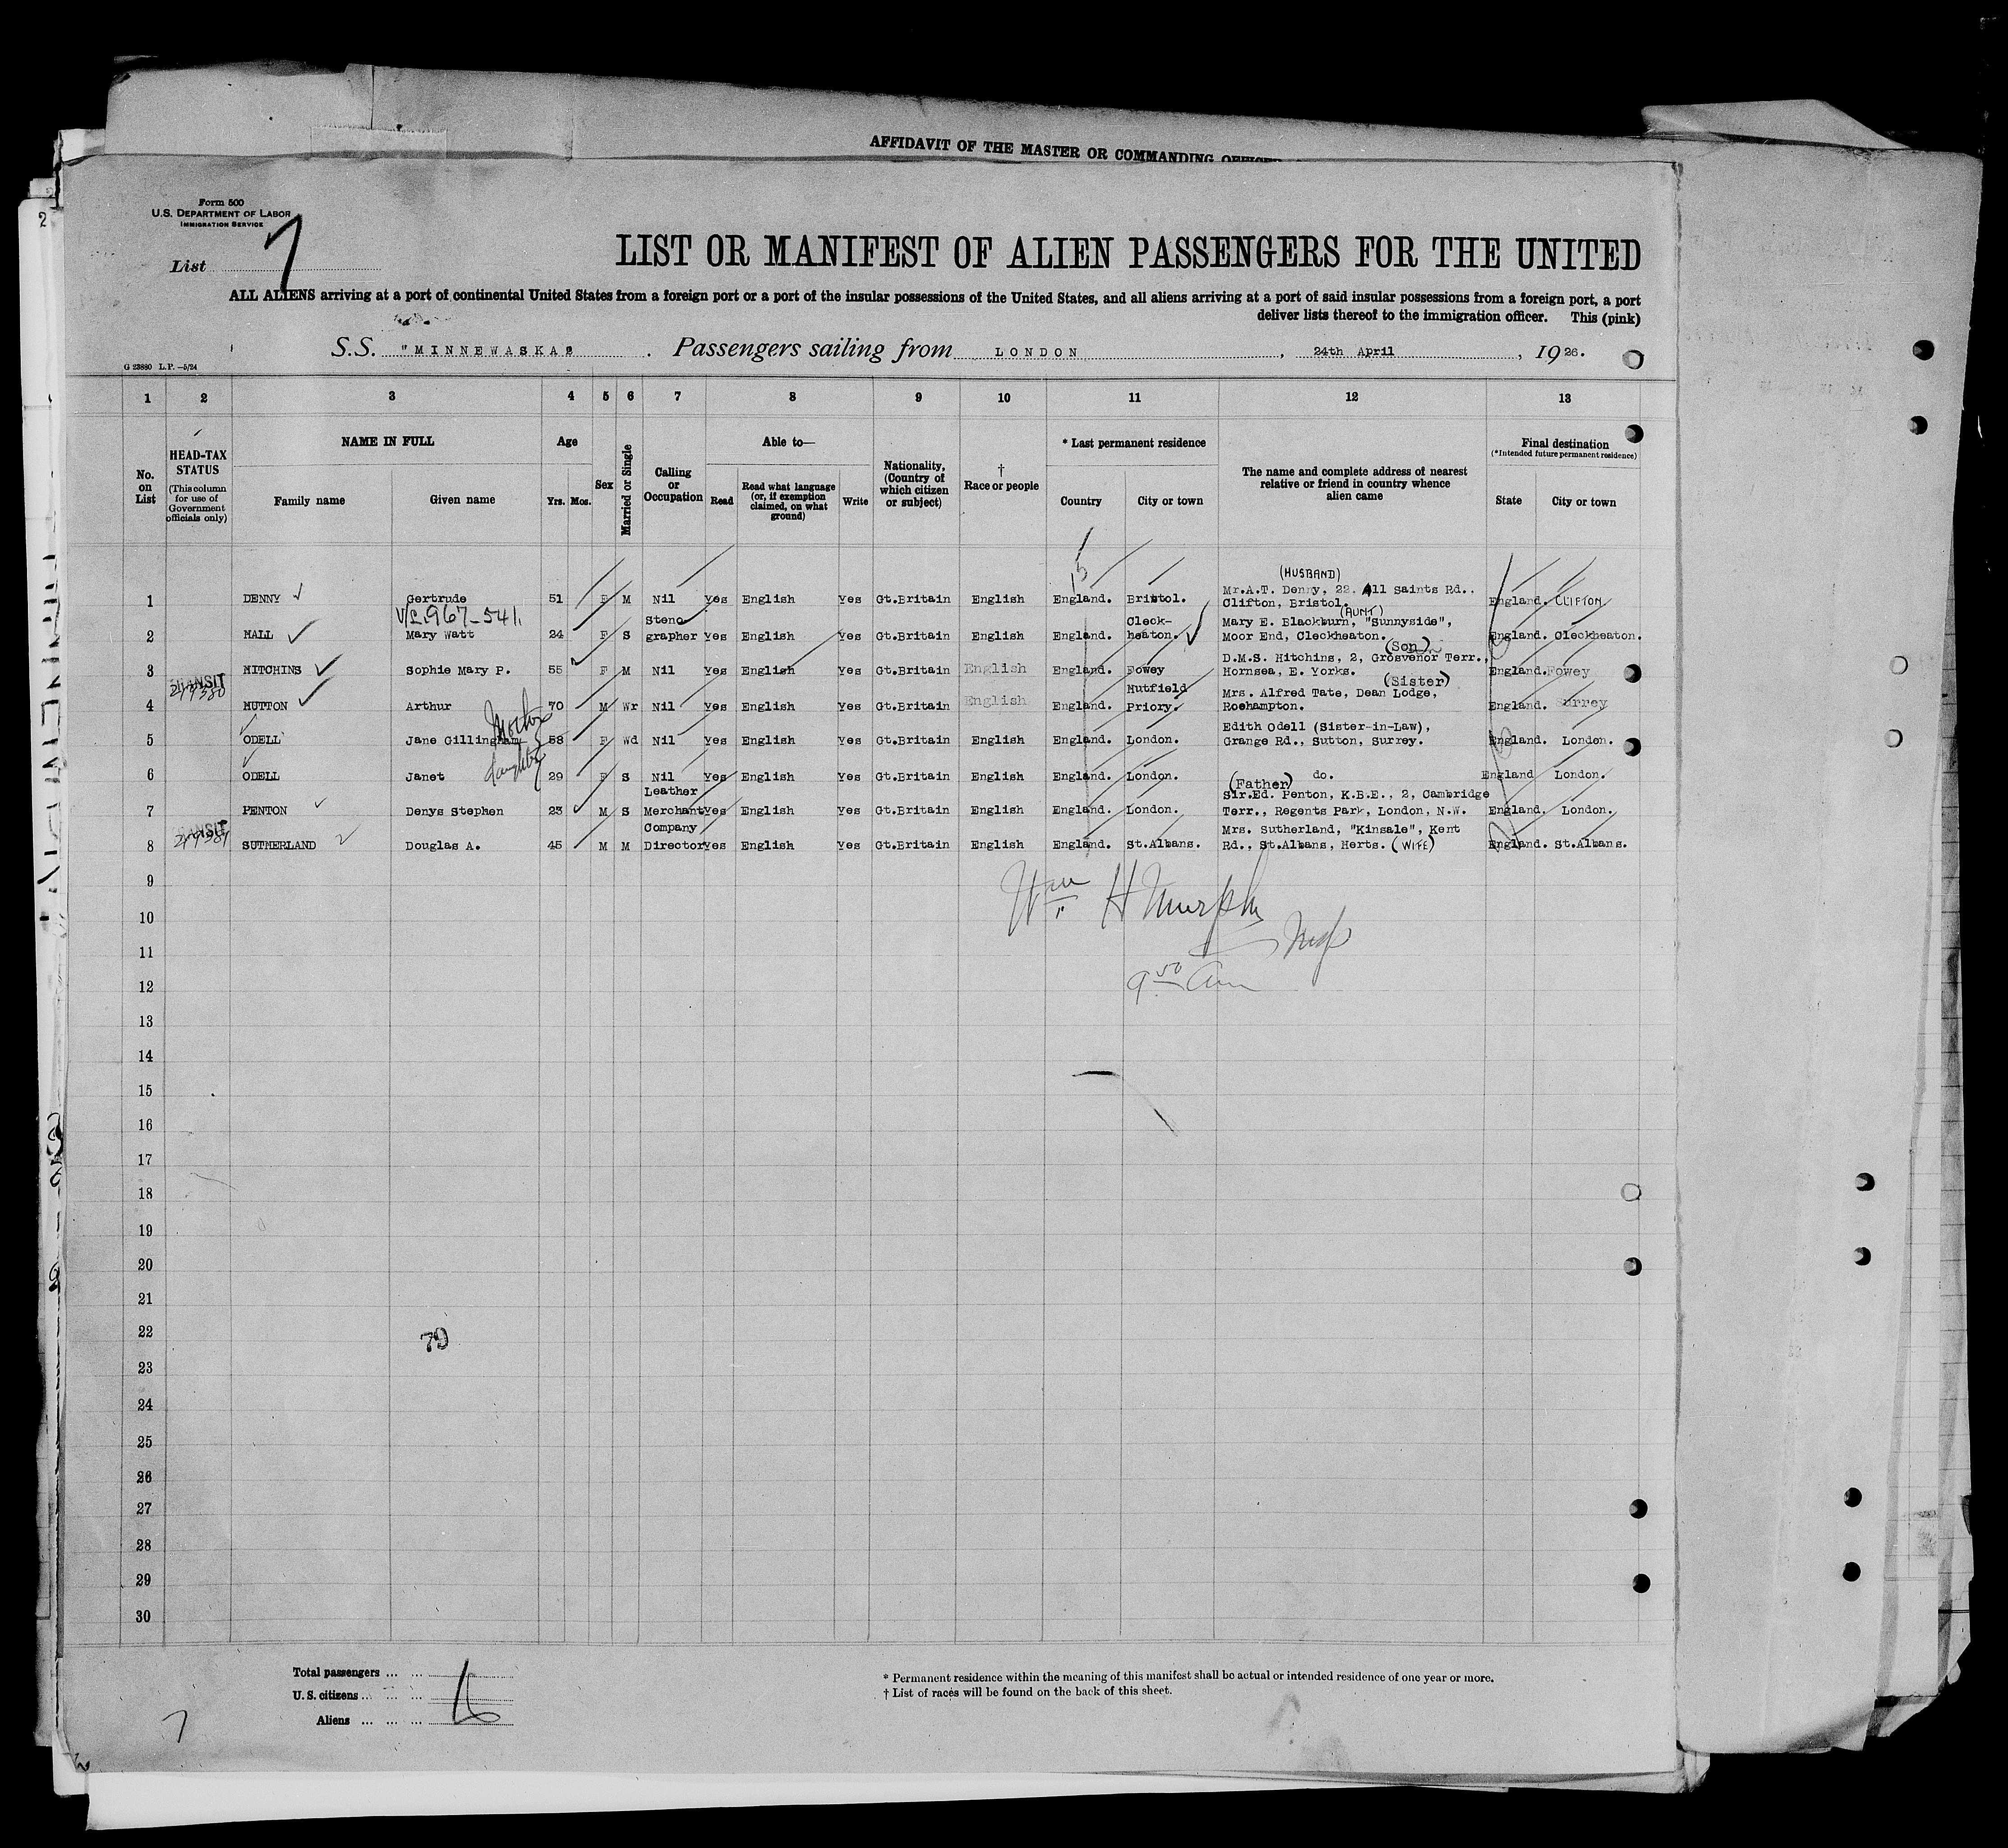 AFFIDAVIT OF THE MASTER OR COMMANDING OFFICER
Form 500
U.S. DEPARTMENT OF LABOR
IMMIGRATION SERVICE
List 7
LIST OR MANIFEST OF ALIEN PASSENGERS FOR THE UNITED
ALL ALIENS arriving at a port of continental United States from a foreign port or a port of the insular possessions of the United States, and all aliens arriving at a port of said insular possessions from a foreign port, a port
deliver lists thereof to the immigration officer. This (pink)
S.S. "MINNEWASKA" . Passengers sailing from LONDON , 24th April , 1926.
G 23880 L.P.—5/24
1 2 3 4 5 6 7 8 9 10 11 12 13
No. on List
HEAD-TAX STATUS (This column for use of Government officials only)
NAME IN FULL
Family name Given name
Age
Yrs. Mos.
Sex
Married or Single
Calling or Occupation
Able to—
Read
Read what language (or, if exemption claimed, on what ground)
Write
Nationality, (Country of which citizen or subject)
† Race or people
* Last permanent residence
Country City or town
The name and complete address of nearest relative or friend in country whence alien came
Final destination
(*Intended future permanent residence)
State City or town
15
(HUSBAND)
Mr.A.T. Denny, 22, All Saints Rd.,
1 DENNY Gertrude 51 F M Nil Yes English Yes Gt.Britain English England. Bristol. Clifton, Bristol. England. CLIFTON
V/L.967-541. Steno Cleck- (AUNT) Mary E. Blackburn, "Sunnyside",
2 HALL Mary Watt 24 F S grapher Yes English Yes Gt.Britain English England. heaton. Moor End, Cleckheaton. England. Cleckheaton.
(Son)
D.M.S. Hitchins, 2, Grosvenor Terr.,
3 HITCHINS Sophie Mary P. 55 F M Nil Yes English Yes Gt.Britain English England. Fowey Hornsea, E. Yorks. England. Fowey
TRANSIT
279380 Nutfield (Sister) Mrs. Alfred Tate, Dean Lodge,
4 HUTTON Arthur 70 M Wr Nil Yes English Yes Gt.Britain English England. Priory. Roehampton. England. Surrey
Mother
Edith Odell (Sister-in-Law),
5 ODELL Jane Gillingham 58 F Wd Nil Yes English Yes Gt.Britain English England. London. Grange Rd., Sutton, Surrey. England. London.
daughter
6 ODELL Janet 29 F S Nil Yes English Yes Gt.Britain English England. London. do. England London.
Leather (Father) Sir.Ed. Penton, K.B.E., 2, Cambridge
7 PENTON Denys Stephen 23 M S Merchant Yes English Yes Gt.Britain English England. London. Terr., Regents Park, London, N.W. England. London.
TRANSIT
Company Mrs. Sutherland, "Kinsale", Kent
8 279381 SUTHERLAND Douglas A. 45 M M Director Yes English Yes Gt.Britain English England. St.Albans. Rd., St.Albans, Herts. (WIFE) England. St.Albans.
9
Wm H Murphy
10
11
12 9 50 am
13
14
15
16
17
18
19
20
21
22 79
23
24
25
26
27
28
29
30
Total passengers ... ...
U.S. citizens ... ... ...
Aliens ... ... ...
* Permanent residence within the meaning of this manifest shall be actual or intended residence of one year or more.
† List of races will be found on the back of this sheet.
7